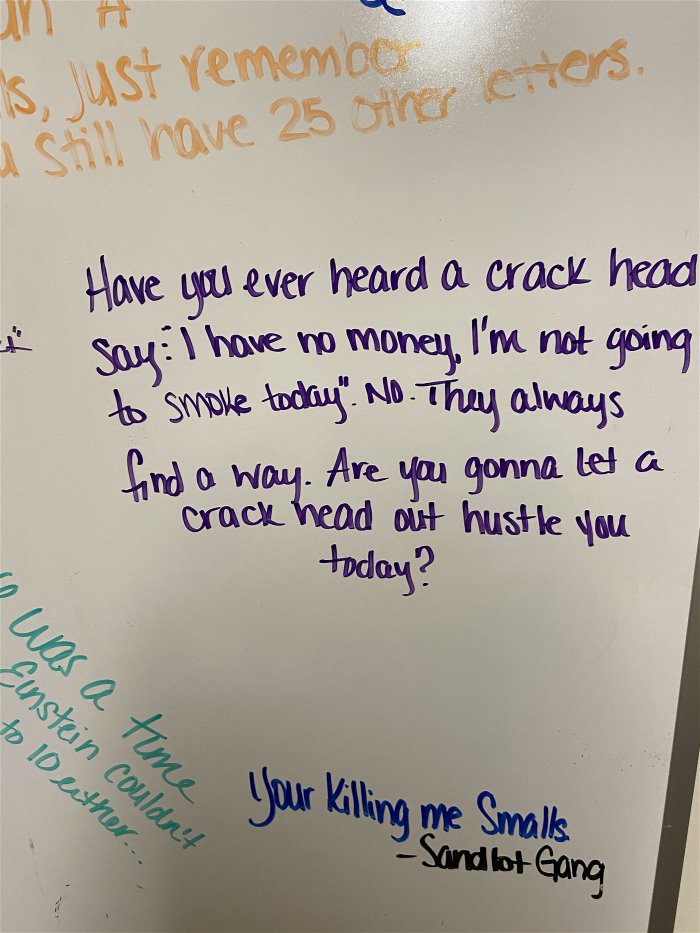 just remember
still have 25 other letters.
Have you ever heard a crack head
say: "I have no money, I'm not going
to smoke today". No. They always
find a way. Are you gonna let a
crack head out hustle you
today?
was a time
Einstein couldn't
to 10 either...
Your killing me Smalls.
- Sandlot Gang